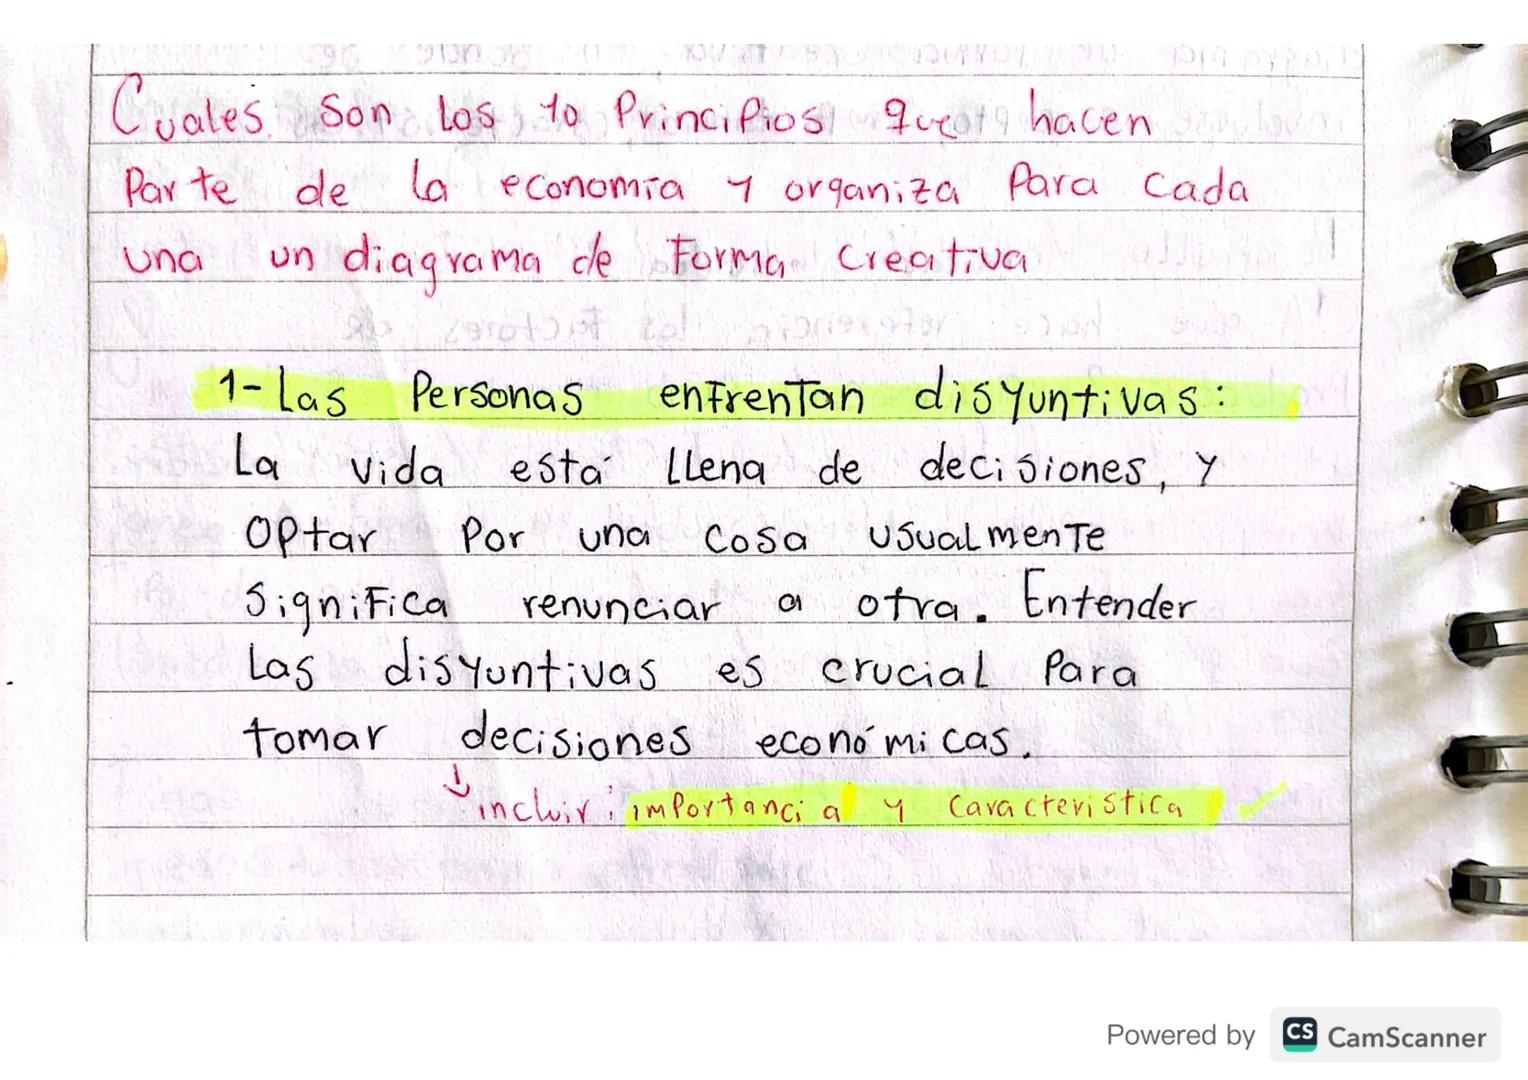 Cuales son los 10 Principios que hacen
Parte de la economía y organiza Para Cada
una un diagrama de Forma Creativa
1- Las Personas enfrentan disyuntivas:
La vida está llena de decisiones, y
optar Por una cosa usualmente
significa renunciar a otra. Entender
las disyuntivas es crucial Para
tomar decisiones económicas.
↳ incluir: importancia y caracteristica
Powered by CS CamScanner